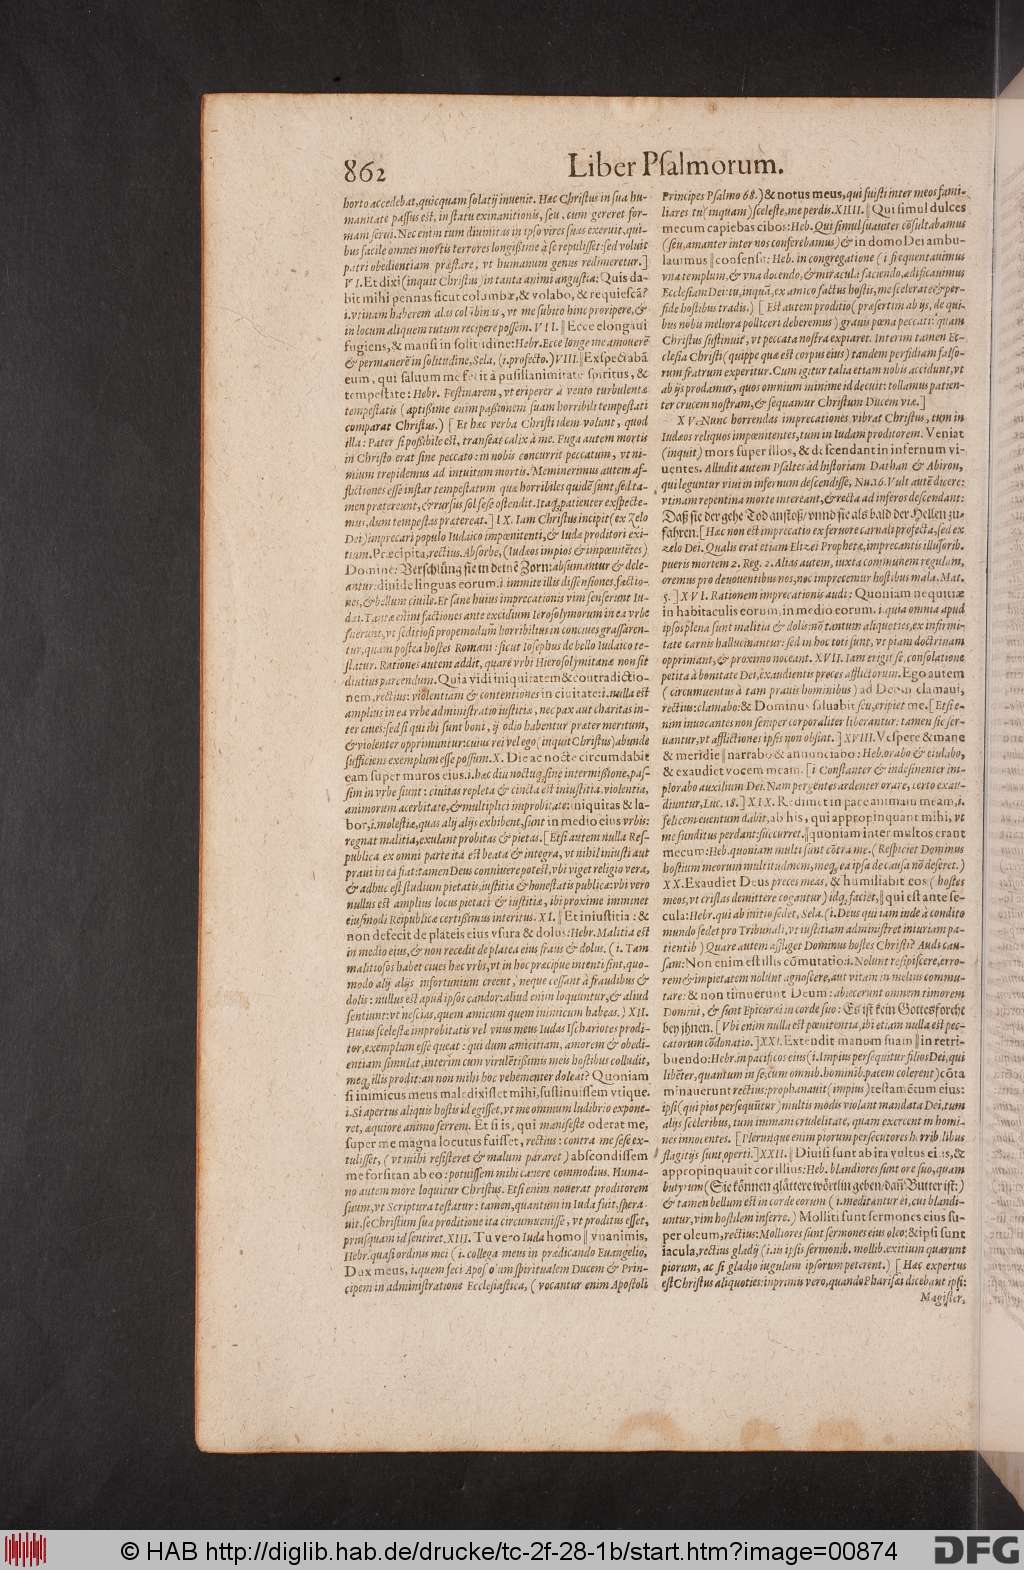 862
Liber Psalmorum.
horto accedebat, quicquam solatij invenit. Hæc Christus in sua hu-
manitate passus est, in statu exinanitionis, seu, cum gereret for-
mam servi. Nec enim tum divinitas in ipso vires suas exeruit, qui-
bus facile omnes mortis terrores longissime à se repulisset: sed voluit
patri obedientiam præstare, vt humanum genus redimeretur.]
VI. Et dixi (inquit Christus) in tanta animi angustia: Quis da-
bit mihi pennas sicut columbæ, & volabo, & requiescã?
i. vtinam haberem alas columbinas, vt me subito hinc proripere, &
in locum aliquem tutum recipere possem. VII. ‖ Ecce elongaui
fugiens, & mansi in solitudine: Hebr. Ecce longe me amouerẽ
& permanerẽ in solitudine, Sela, (i. profecto.) VIII. ‖ Exspectabã
eum, qui saluum me fecit à pusillanimitate spiritus, &
tempestate: Hebr. Festinarem, vt eriperer à vento turbulentæ
tempestatis (aptissime enim passionem suam horribili tempestati
comparat Christus.) [Et hæc verba Christi idem volunt, quod
illa: Pater si possibile est, transeat calix à me. Fuga autem mortis
in Christo erat sine peccato: in nobis concurrit peccatum, vt ni-
mium trepidemus ad intuitum mortis. Meminerimus autem af-
flictiones esse instar tempestatum quæ horribiles quidẽ sunt, sed ta-
men prætereunt, & rursus sol sese ostendit. Itaq; patienter exspecte-
mus, dum tempestas prætereat.] IX. Iam Christus incipit (ex zelo
Dei) imprecari populo Iudaico impœnitenti, & Iudæ proditori exi-
tium. Præcipita, rectius. Absorbe, (Iudæos impios & impœnitẽtes)
Domine: Verschling sie in deinẽ Zorn: absumantur & dele-
antur: diuide linguas eorum. i. immitte illis dissensiones, factio-
nes, & bellum ciuile. Et sane huius imprecationis vim senserunt Iu-
dæi. Tantæ enim factiones ante excidium Ierosolymorum in ea vrbe
fuerunt, vt seditiosi propemodum horribilius in concives grassaren-
tur, quam postea hostes Romani: sicut Iosephus de bello Iudaico te-
statur. Rationes autem addit, quare vrbi Hierosolymitanæ non sit
diutius parcendum. Quia vidi iniquitatem & contradictio-
nem, rectius: violentiam & contentiones in ciuitate: i. nulla est
amplius in ea vrbe administratio iustitiæ, nec pax aut charitas in-
ter ciues: sed si qui ibi sunt boni, ij odio habentur præter meritum,
& violenter opprimuntur: cuius rei vel ego (inquit Christus) abunde
sufficiens exemplum esse possum. X. Die ac nocte circumdabit
eam super muros eius. i. hæc diu noctuq; sine intermissione, pas-
sim in vrbe fiunt: ciuitas repleta & cincta est iniustitia, violentia,
animorum acerbitate, & multiplici improbitate: iniquitas & la-
bor, i. molestiæ, quas alij alijs exhibent, sunt in medio eius vrbis:
regnat malitia, exulant probitas & pietas. [Etsi autem nulla Res-
publica ex omni parte ita est beata & integra, vt nihil iniusti aut
praui in ea fiat: tamen Deus conniuere potest, vbi viget religio vera,
& adhuc est studium pietatis, iustitiæ & honestatis publicæ: vbi vero
nullus est amplius locus pietati & iustitiæ, ibi proxime imminet
eiusmodi Reipublicæ certissimus interitus. XI. ‖ Et iniustitia: &
non defecit de plateis eius vsura & dolus: Hebr. Malitia est
in medio eius, & non recedit de platea eius fraus & dolus. (i. Tam
malitiosos habet ciues hæc vrbs, vt in hoc præcipue intenti sint, quo-
modo alij alijs infortunium creent, neque cessant à fraudibus &
dolis: nullus est apud ipsos candor: aliud enim loquuntur, & aliud
sentiunt: vt nescias, quem amicum quem inimicum habeas.) XII.
Huius scelestæ improbitatis vel vnus meus Iudas Ischariotes prodi-
tor, exemplum esse queat: qui dum amicitiam, amorem & obedi-
entiam simulat, interim cum virulẽtissimis meis hostibus colludit,
meq; illis prodit: an non mihi hoc vehementer doleat? Quoniam
si inimicus meus maledixisset mihi, sustinuissem vtique.
i. Si apertus aliquis hostis id egisset, vt me omnum ludibrio expone-
ret, æquiore animo ferrem. Et si is, qui manifeste oderat me,
super me magna locutus fuisset, rectius: contra me sese ex-
tulisset, (vt mihi resisteret & malum pararet) abscondissem
me forsitan ab eo: potuissem mihi cavere commodius. Huma-
no autem more loquitur Christus. Etsi enim noverat proditorem
suum, vt Scriptura testatur: tamen, quantum in Iuda fuit, spera-
uit, se Christum sua proditione ita circumuenisse, vt proditus esset,
priusquam id sentiret. XIII. Tu vero Iuda homo ‖ vnanimis,
Hebr. quasi ordinis mei (i. collega meus in prædicando Euangelio,
Dux meus, i. quem feci Apostolum spiritualem Ducem & Prin-
cipem in administratione Ecclesiastica, (vocantur enim Apostoli
Principes Psalmo 68.) & notus meus, qui fuisti inter meos fami-
liares tu (inquam) sceleste, me perdis. XIIII. ‖ Qui simul dulces
mecum capiebas cibos: Heb. Qui simul suauiter cõsultabamus
(seu, amanter inter nos conferebamus) & in domo Dei ambu-
lauimus ‖ consensu: Heb. in congregatione (i. frequentauimus
vna templum, & vna docendo, & miracula faciendo, ædificauimus
Ecclesiam Dei: tu, inquã, ex amico factus hostis, me scelerate & per-
fide hostibus tradis.) [Est autem proditio (præsertim ab ijs, de qui-
bus nobis meliora polliceri deberemus) grauis pœna peccati: quam
Christus sustinuit, vt peccata nostra expiaret. Interim tamen Ec-
clesia Christi (quippe quæ est corpus eius) tandem perfidiam falso-
rum fratrum experitur. Cum igitur talia etiam nobis accidunt, vt
ab ijs prodamur, quos omnium minime id decuit: tollamus patien-
ter crucem nostram, & sequamur Christum Ducem viæ.]
XV. Nunc horrendas imprecationes vibrat Christus, tum in
Iudæos reliquos impœnitentes, tum in Iudam proditorem. Veniat
(inquit) mors super illos, & descendant in infernum vi-
uentes. Alludit autem Psaltes ad historiam Dathan & Abiron,
qui leguntur viui in infernum descendisse, Nu. 16. Vult autẽ dicere:
vtinam repentina morte intereant, & recta ad inferos descendant:
Daß sie der gehe Tod anstoß/ vnnd sie als bald der Hellen zu-
fahren. [Hæc non est imprecatio ex feruore carnali profecta, sed ex
zelo Dei. Qualis erat etiam Elizei Prophetæ, imprecantis illusorib.
pueris mortem 2. Reg. 2. Alias autem, iuxta communem regulam,
oremus pro deuouentibus nos, nec imprecemur hostibus mala. Mat.
5.] XVI. Rationem imprecationis audi: Quoniam nequitiæ
in habitaculis eorum, in medio eorum. i. quia omnia apud
ipsos plena sunt malitia & dolis: nõ tantum aliquoties, ex infirmi-
tate carnis hallucinantur: sed in hoc toti sunt, vt piam doctrinam
opprimant, & proximo noceant. XVII. Iam erigit se, consolatione
petita à bonitate Dei, exaudientis preces afflictorum. Ego autem
(circumuentus à tam prauis hominibus) ad Deum clamaui,
rectius: clamabo: & Dominus saluabit seu, eripiet me. [Etsi e-
nim inuocantes non semper corporaliter liberantur: tamen sic ser-
uantur, vt afflictiones ipsis non obsint.] XVIII. Vespere & mane
& meridie ‖ narrabo & annunciabo: Heb. orabo & eiulabo,
& exaudiet vocem meam. [i. Constanter & indesinenter im-
plorabo auxilium Dei. Nam pergentes ardenter orare, certo exau-
diuntur, Luc. 18.] XIX. Redimet in pace animam meam, i.
felicem euentum dabit, ab his, qui appropinquant mihi, vt
me funditus perdant: succurret. ‖ quoniam inter multos erant
mecum: Heb. quoniam multi sunt cõtra me. (Respiciet Dominus
hostium meorum multitudinem, meq; ea ipsa de causa nõ deseret.)
XX. Exaudiet Deus preces meas, & humiliabit eos (hostes
meos, vt cristas demittere cogantur) idq; faciet, ‖ qui est ante se-
cula: Hebr. qui ab initio sedet, Sela. (i. Deus qui iam inde à condito
mundo sedet pro Tribunali, vt iustitiam administret iniuriam pa-
tientib.) Quare autem affliget Dominus hostes Christi? Audi cau-
sam: Non enim est illis cõmutatio: i. Nolunt resipiscere, erro-
rem & impietatem nolunt agnoscere, aut vitam in melius commu-
tare: & non timuerunt Deum: abiecerunt omnem timorem
Domini, & sunt Epicuræi in corde suo: Es ist kein Gottesforcht
bey jhnen. [Vbi enim nulla est pœnitentia, ibi etiam nulla est pec-
catorum cõdonatio.] XXI. Extendit manum suam ‖ in retri-
buendo: Hebr. in pacificos eius (i. Impius persequitur filios Dei, qui
libẽter, quantum in se, cum omnib. hominib. pacem colerent) cõta
minauerunt rectius: prophanauit (impius) testamẽtum eius:
ipsi (qui pios persequũtur) multis modis violant mandata Dei, tum
alijs sceleribus, tum immani crudelitate, quam exercent in homi-
nes innocentes. [Plerunque enim piorum persecutores horribilibus
flagitijs sunt operti.] XXII. ‖ Diuisi sunt ab ira vultus eius, &
appropinquauit cor illius: Heb. blandiores sunt ore suo, quam
butyrum (Sie können glättere wörtlin geben/ dañ Butter ist:)
& tamen bellum est in corde eorum (i. meditantur ei, cui blandi-
untur, vim hostilem inferre.) Molliti sunt sermones eius su-
per oleum, rectius: Molliores sunt sermones eius oleo: & ipsi sunt
iacula, rectius gladij (i. iis ipsis sermonib. mollib. exitium quærunt
piorum, ac si gladio iugulum ipsorum peterent.) [Hæc expertus
est Christus aliquoties: inprimis vero, quando Pharisæi dicebant ipsi:
Magister,
© HAB http://diglib.hab.de/drucke/tc-2f-28-1b/start.htm?image=00874
DFG